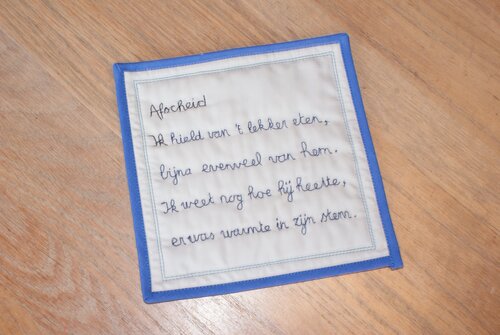 Afscheid
Ik hield van 't lekker eten,
bijna evenveel van hem.
Ik weet nog hoe hij heette,
er was warmte in zijn stem.